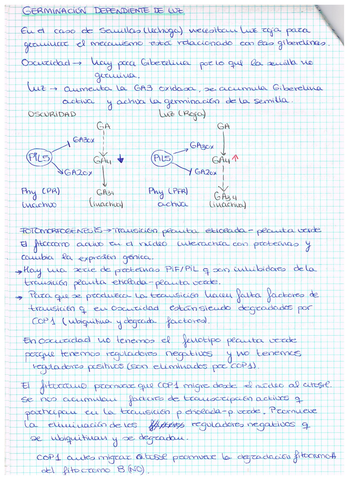 GERMINACIÓN DEPENDIENTE DE LUZ
En el caso de Semillas (lechuga) necesitan luz roja para
germinar el mecanismo está relacionado con las giberelinas.
Oscuridad → hay poca Giberelina por lo que la semilla no
germina.
Luz → aumenta la GA3 oxidasa, se acumula Giberelina
activa y activa la germinación de la semilla.
OSCURIDAD Luz (Roja)
GA GA
GA3ox GA3ox
PIL5 GA4 PIL5 GA4
GA2ox GA2ox
Phy (PR) GA34 Phy (PFR) GA34
inactivo (inactiva) activa (inactiva)
FOTOMORFOGENESIS → Transición planta etiolada - planta verde
El fitocromo activo en el núcleo interacciona con proteínas y
cambia la expresión génica.
→ Hay una serie de proteínas PIF/PIL q son inhibidores de la
transición planta etiolada - planta verde.
→ Para que se produzca la transición hacen falta factores de
transición q en oscuridad están siendo degradados por
COP1 (ubiquitina y degrada factores).
En Oscuridad no tenemos el fenotipo planta verde
porque tenemos reguladores negativos y no tenemos
reguladores positivos (son eliminados por COP1)
El fitocromo promueve que COP1 migre desde el núcleo al citosol
Se nos acumulan factores de transcripción activos q
participan en la transición p. etiolada - p. verde. Promueve
la eliminación de los reguladores negativos q
se ubiquitinan y se degradan.
COP1 antes migrar al citosol promueve la degradación fitocromo A
del fitocromo B (NO).